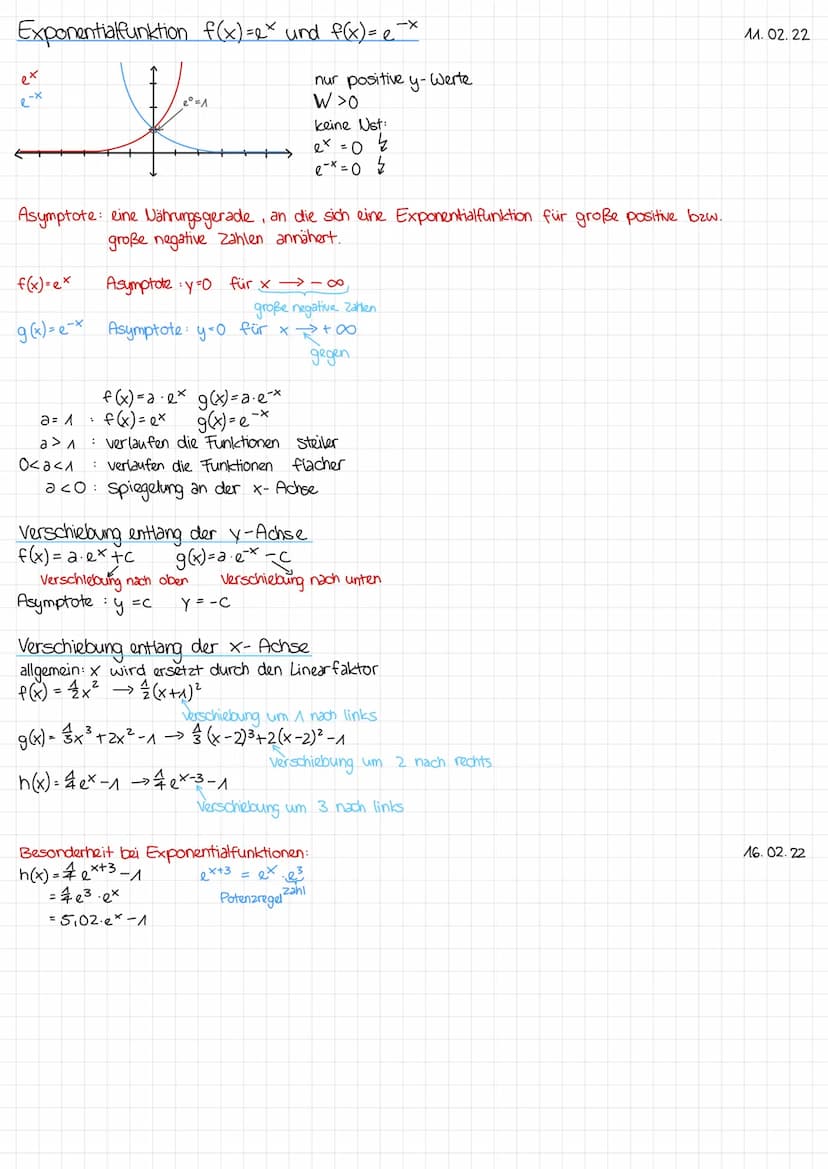 Exponentialfunktion f(x)=eˣ und f(x)=e⁻ˣ 11.02.22
eˣ
e⁻ˣ
e⁰=1
nur positive y-Werte
W >0
keine Nst:
eˣ =0 ↯
e⁻ˣ=0 ↯
Asymptote: eine Nährungsgerade, an die sich eine Exponentialfunktion für große positive bzw.
große negative Zahlen annähert.
f(x)=eˣ Asymptote: y=0 für x → -∞
große negative Zahlen
g(x)=e⁻ˣ Asymptote: y=0 für x → +∞
gegen
f(x)=a·eˣ g(x)=a·e⁻ˣ
a=1 : f(x)=eˣ g(x)=e⁻ˣ
a>1 : verlaufen die Funktionen steiler
0<a<1 : verlaufen die Funktionen flacher
a<0 : Spiegelung an der x-Achse
Verschiebung entlang der y-Achse
f(x)=a·eˣ+c g(x)=a·e⁻ˣ-c
Verschiebung nach oben Verschiebung nach unten
Asymptote : y=c y=-c
Verschiebung entlang der x-Achse
allgemein: x wird ersetzt durch den Linearfaktor
f(x)=½x² → ½(x+1)²
Verschiebung um 1 nach links
g(x)=⅓x³+2x²-1 → ⅓(x-2)³+2(x-2)²-1
Verschiebung um 2 nach rechts
h(x)=¼eˣ-1 → ¼eˣ⁻³-1
Verschiebung um 3 nach links
Besonderheit bei Exponentialfunktionen: 16.02.22
h(x)=¼eˣ⁺³-1 eˣ⁺³ = eˣ·e³
=¼e³·eˣ Potenzregel Zahl
=5,02·eˣ-1